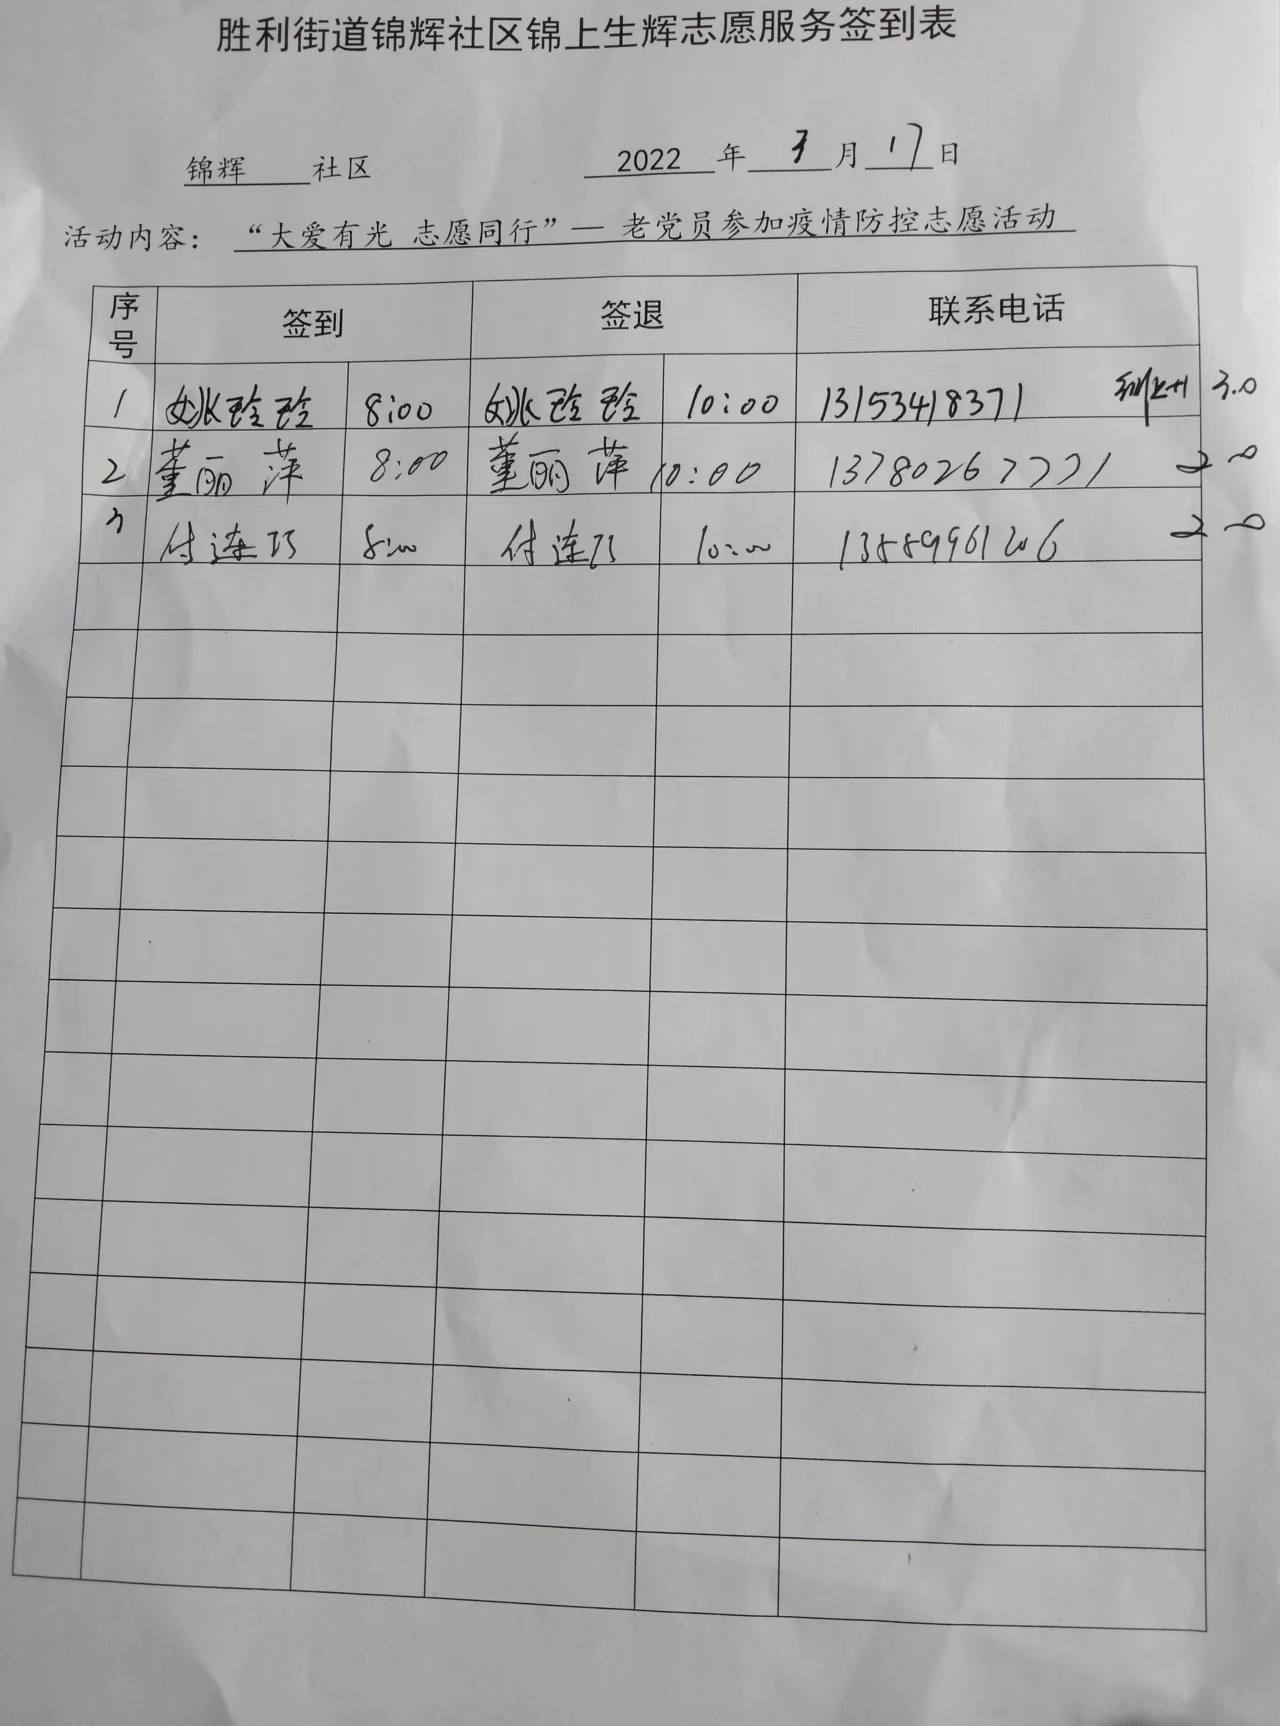 胜利街道锦辉社区锦上生辉志愿服务签到表
锦辉 社区 2022 年 3 月 17 日
活动内容： “大爱有光 志愿同行”— 老党员参加疫情防控志愿活动
序号 签到 签退 联系电话
1 姚玲玲 8:00 姚玲玲 10:00 13153418371 3.0
2 董丽萍 8:00 董丽萍 10:00 13780267771 20
3 付连巧 8:00 付连巧 10:00 13889961206 20